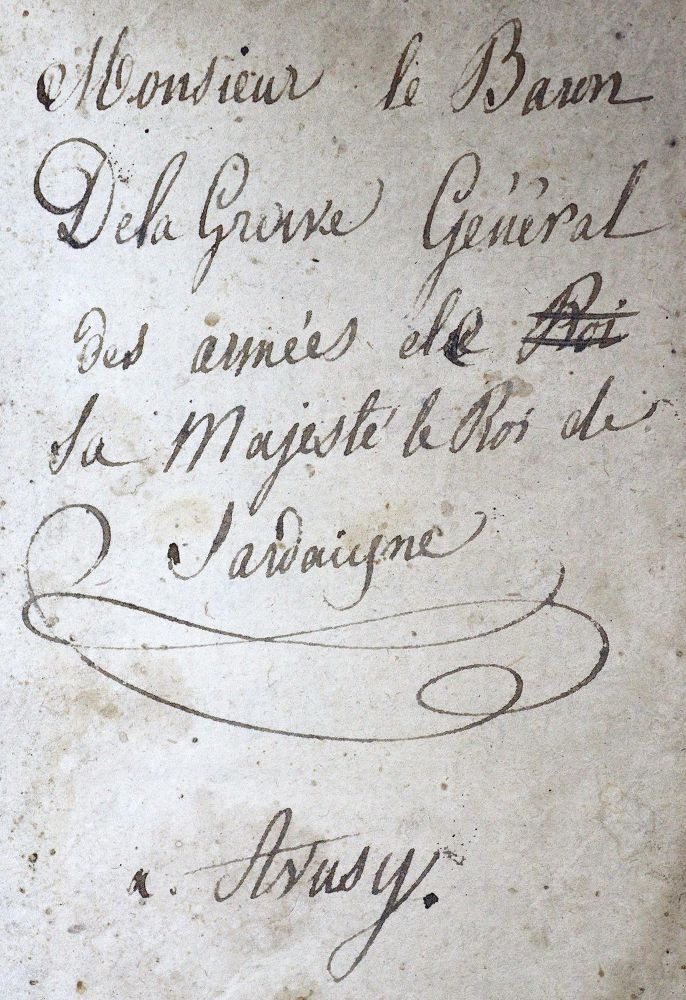 Monsieur le Baron
De la Grove Général
des armées de Roi
sa Majesté le Roi de
Sardaigne
a. Avusy.